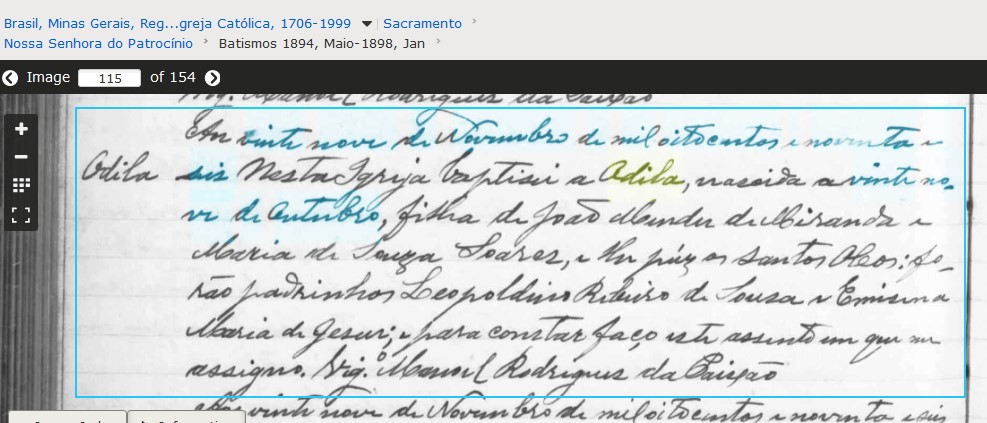 Brasil, Minas Gerais, Reg...greja Católica, 1706-1999 Sacramento
Nossa Senhora do Patrocínio Batismos 1894, Maio-1898, Jan
Image 115 of 154
Vig. Manoel Rodrigues da Paixão
Aos vinte nove de Novembro de mil oitocentos e noventa e
Odila seis Nesta Igreja baptisei a Odila, nascida a vinte no-
ve de Outubro, filha de João Mendes de Miranda e
Maria de Souza Soares, e lhe púz os santos Oleos: fo-
rão padrinhos Leopoldino Ribeiro de Sousa e
Maria de Jesus; e para constar faço este assento em que me
assigno. Vig.º Manoel Rodrigues da Paixão
Aos vinte nove de Novembro de mil oitocentos e noventa e seis